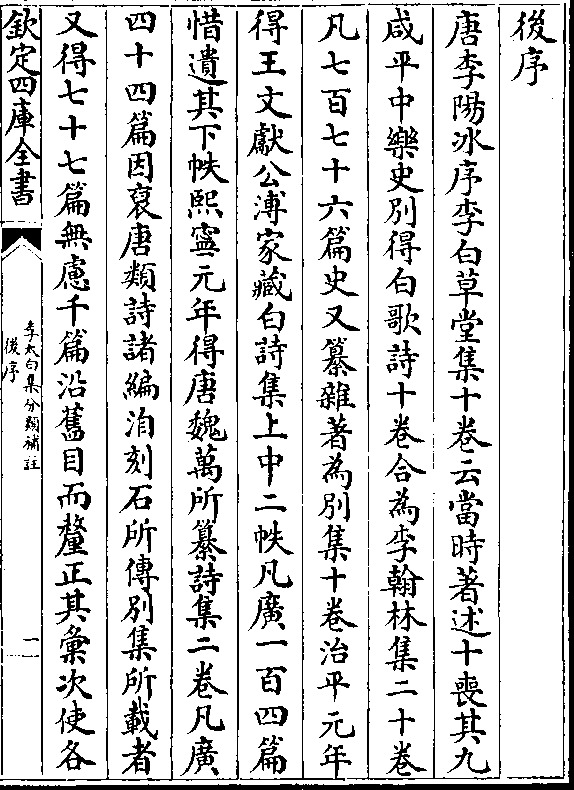 後序
唐李陽冰序李白草堂集十卷云當時著述十喪其九
咸平中樂史別得白歌詩十卷合為李翰林集二十卷
凡七百七十六篇史又纂雜著為別集十卷治平元年
得王文獻公溥家藏白詩集上中二帙凡廣一百四篇
惜遺其下帙熙寧元年得唐魏萬所纂詩集二卷凡廣
四十四篇因裒唐類詩諸編洎刻石所傳別集所載者
又得七十七篇無慮千篇沿舊目而釐正其彙次使各
欽定四庫全書
李太白集分類補註
後序
一